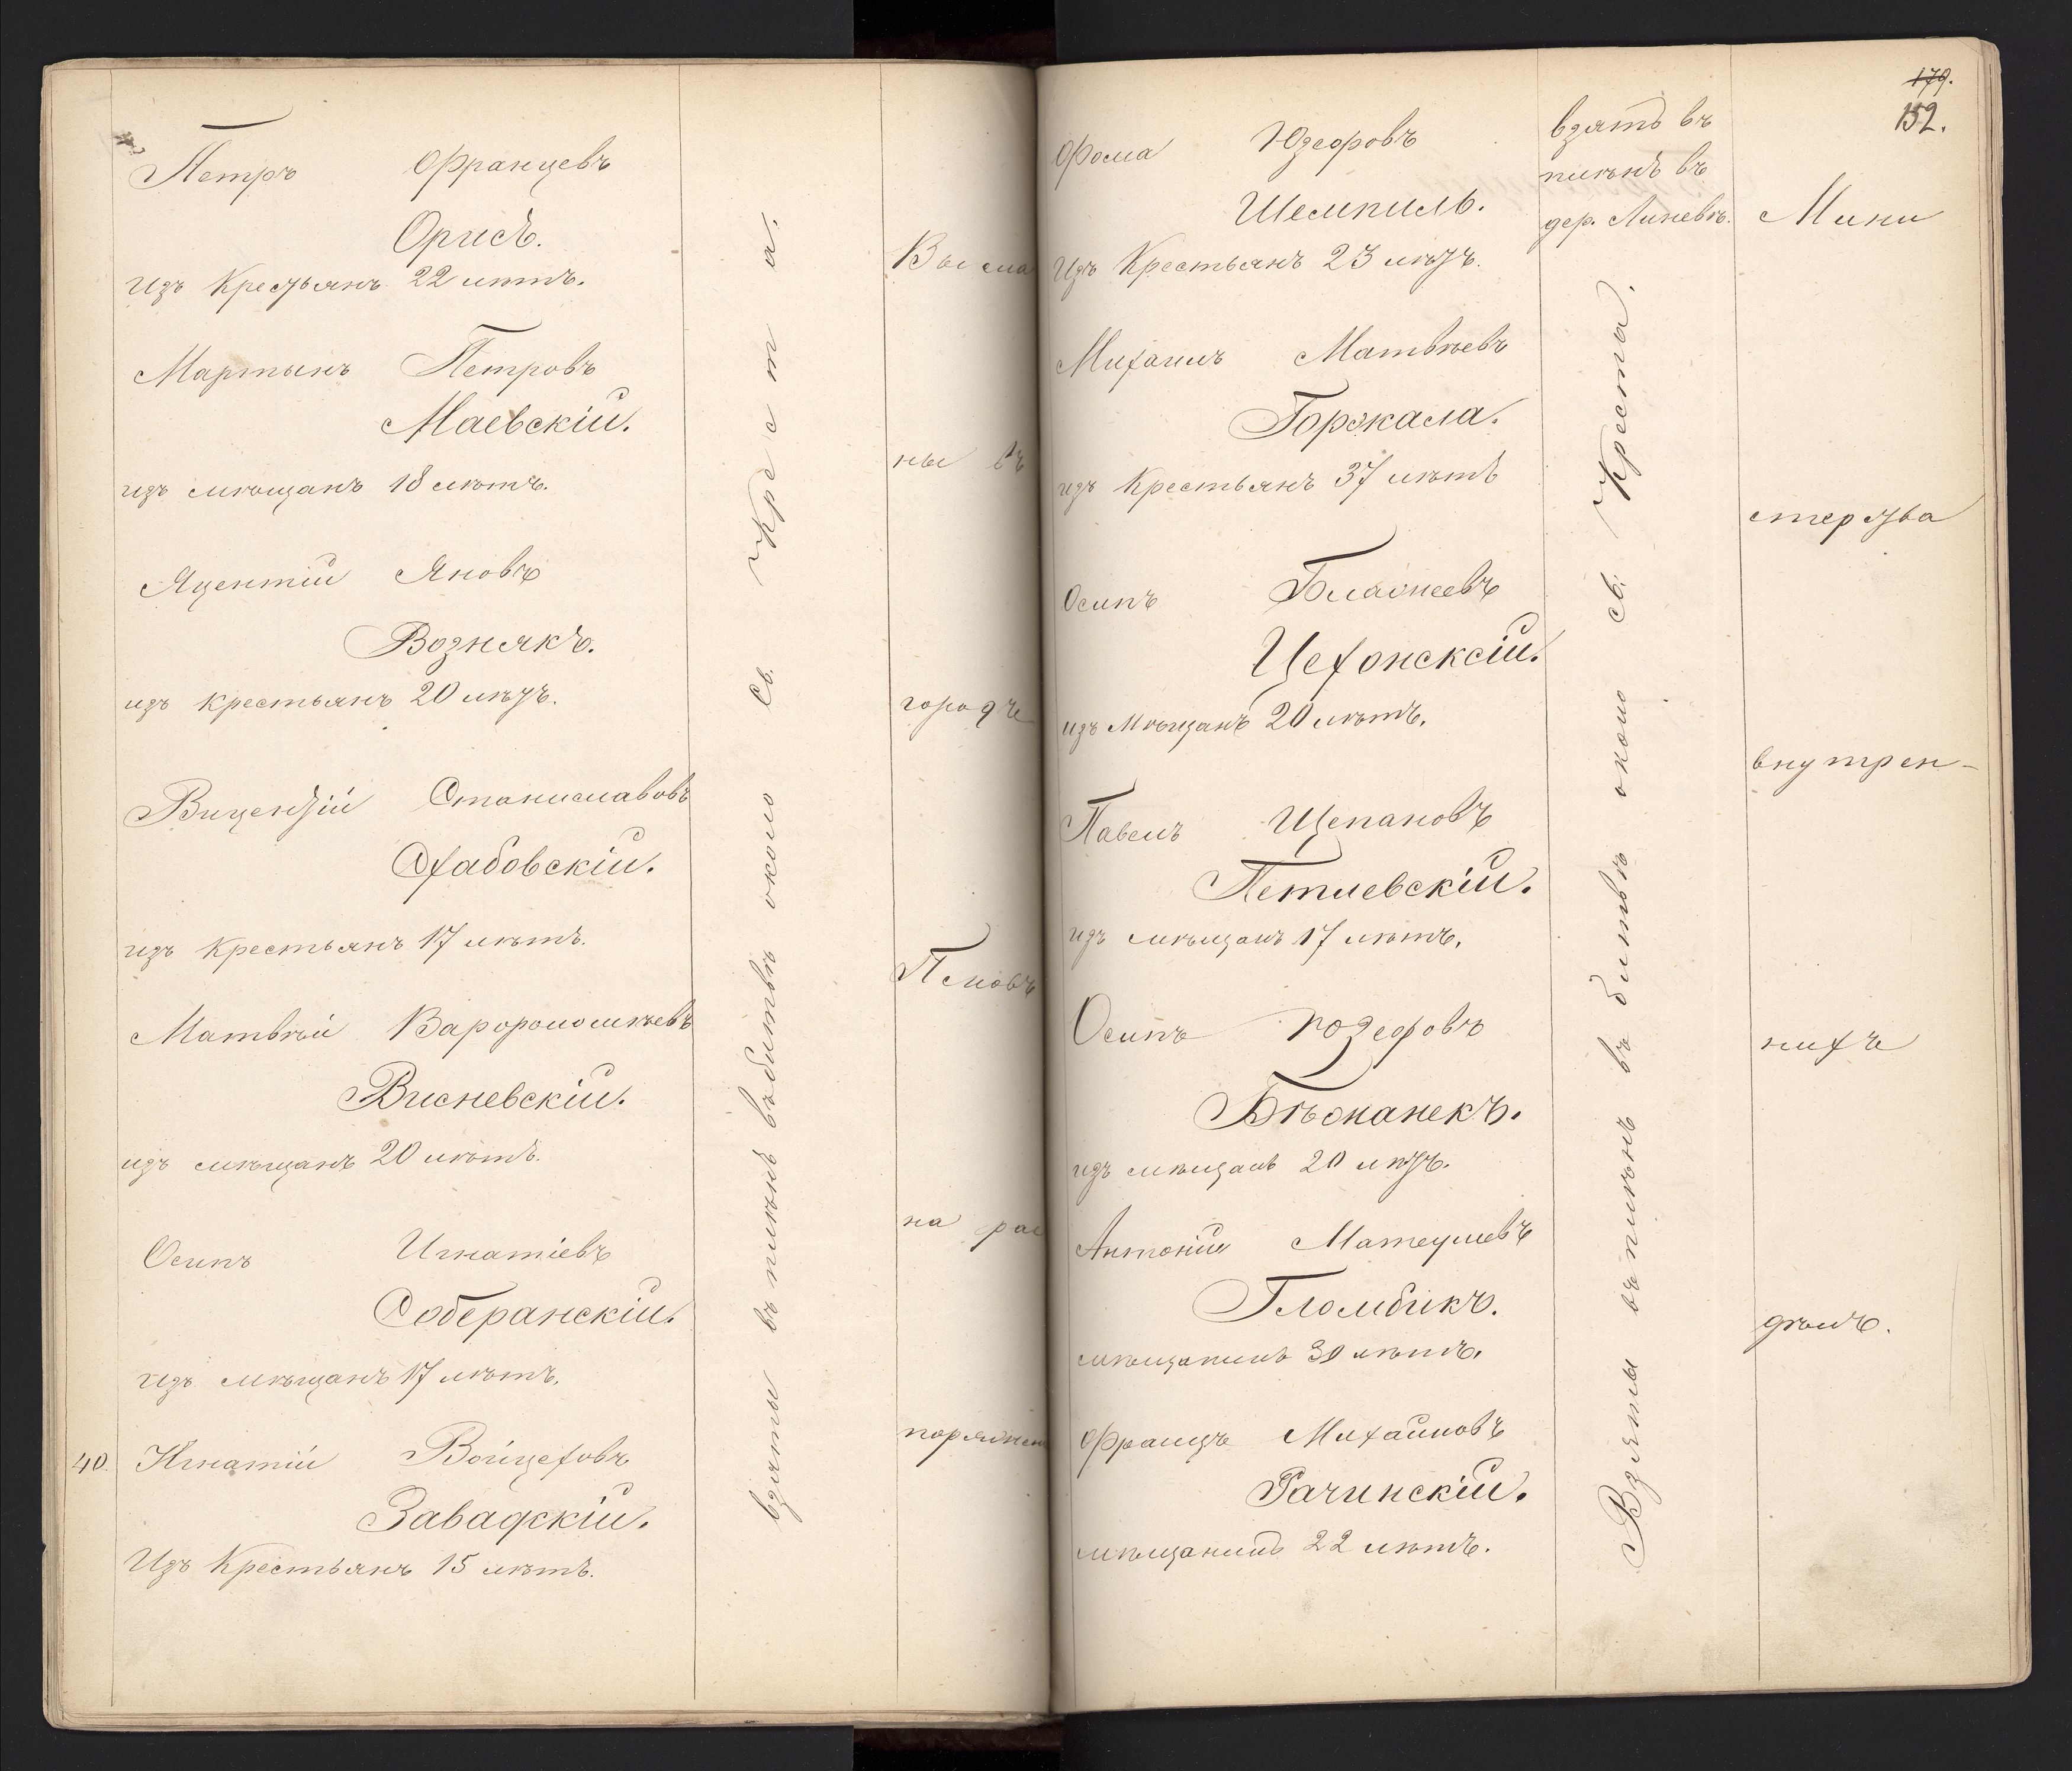 Петръ Францевъ
Орисъ.
Изъ Крестьянъ 22 лѣтъ.
Мартынъ Петровъ
Маевскій.
изъ мѣщанъ 18 лѣтъ.
Яцентій Яновъ
Вознякъ.
изъ крестьянъ 20 лѣтъ.
Вицентій Станиславовъ
Схабовскій.
изъ Крестьянъ 17 лѣтъ.
Матвѣй Варфоломѣевъ
Висневскій.
изъ мѣщанъ 20 лѣтъ.
Осипъ Игнатіевъ
Соберанскій.
изъ мѣщанъ 17 лѣтъ.
40. Игнатій Войцеховъ
Завадскій.
Изъ Крестьянъ 15 лѣтъ.
взяты въ плѣнъ въ битвѣ около Св. Креста.
Высла
ны въ
городъ
Псковъ
на рас
поряжен
179.
152.
Фома Юзефовъ
Шемпиль.
Изъ Крестьянъ 23 лѣтъ.
взятъ въ
плѣнъ въ
дер. Линевѣ.
Михаилъ Матвѣевъ
Горжала.
изъ Крестьянъ 37 лѣтъ
Осипъ Блажеевъ
Цехонскій.
изъ Мѣщанъ 20 лѣтъ.
Павелъ Щепановъ
Петлевскій.
изъ мѣщанъ 17 лѣтъ.
Осипъ Юзефовъ
Бѣжанекъ.
изъ мѣщанъ 20 лѣтъ.
Антоній Матеушевъ
Гломбикъ.
мѣщанинъ 30 лѣтъ.
Францъ Михайловъ
Рачинскій.
мѣщанинъ 22 лѣтъ.
Взяты въ плѣнъ въ битвѣ около св. Креста.
Мини
стерства
внутрен-
нихъ
дѣлъ.